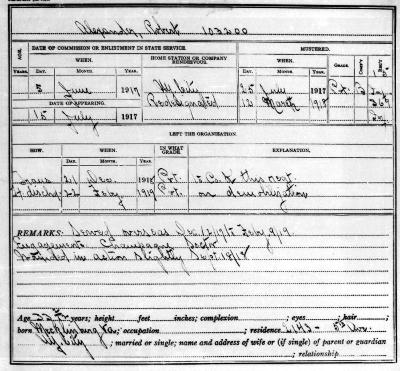 Alexander, Robert 103200
DATE OF COMMISSION OR ENLISTMENT IN STATE SERVICE. MUSTERED.
AGE. WHEN. HOME STATION OR COMPANY RENDEZVOUS. WHEN. GRADE. COM'Y REG'T
YEARS. DAY. MONTH. YEAR. DAY. MONTH. YEAR.
5 June 1917 NY City 25 July 1917 Pvt.
DATE OF APPEARING. Redesignated 12 March 1918
15 July 1917
LEFT THE ORGANIZATION.
HOW. WHEN. IN WHAT GRADE EXPLANATION.
DAY. MONTH. YEAR.
Trans 21 Dec 1918 Pvt. to Co. this regt.
H. disch. 22 Feby. 1919 Pvt. on demobilization
REMARKS: Served overseas Dec 12/17 to Feby 9/19
Engagements Champagne Sector
Wounded in action slightly Sept 18/18
Age 22 years; height feet inches; complexion ; eyes ; hair ;
born Mecklinburg Va.; occupation ; residence 2143 - 5th Ave.
NY City ; married or single; name and address of wife or (if single) of parent or guardian
; relationship